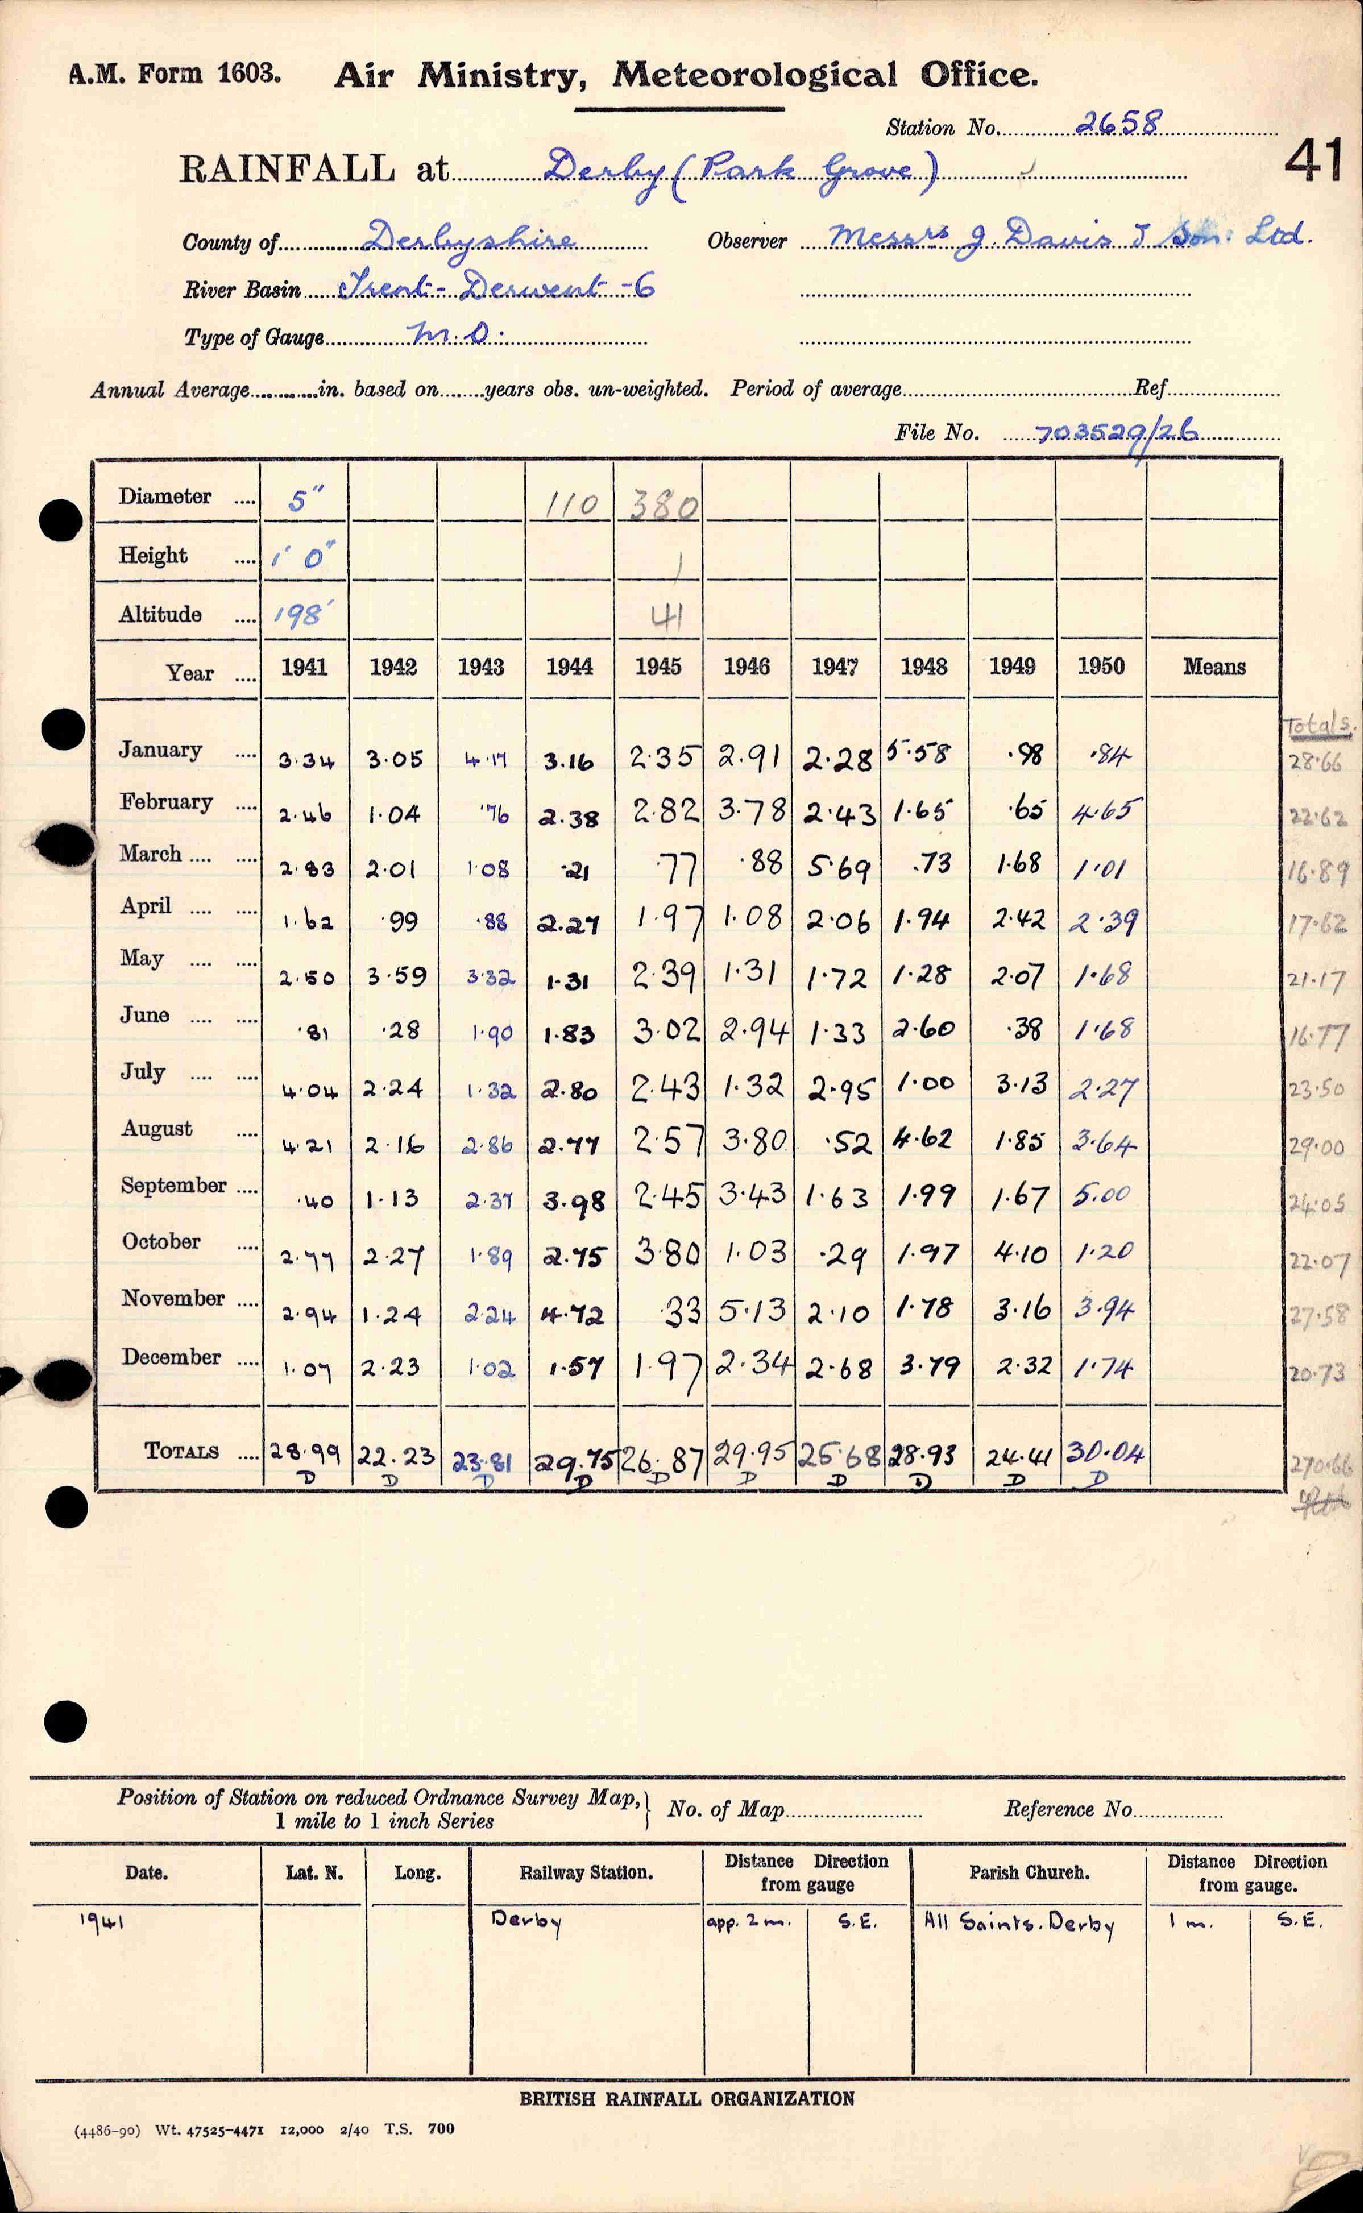 A.M. Form 1603. Air Ministry, Meteorological Office.
Station No. 2658
41
RAINFALL at Derby (Park Grove)
County of Derbyshire Observer Messrs J. Davis & Son. Ltd.
River Basin Trent - Derwent - 6
Type of Gauge M.O.
Annual Average in. based on years obs. un-weighted. Period of average Ref
File No. 703529/26
Diameter 5" 110 380
Height 1' 0" 1
Altitude 198' 41
Year 1941 1942 1943 1944 1945 1946 1947 1948 1949 1950 Means
Totals.
January 3.34 3.05 4.17 3.16 2.35 2.91 2.28 5.58 .98 .84 28.66
February 2.46 1.04 .76 2.38 2.82 3.78 2.43 1.65 .65 4.65 22.62
March 2.83 2.01 1.08 .21 .77 .88 5.69 .73 1.68 1.01 16.89
April 1.62 .99 .88 2.27 1.97 1.08 2.06 1.94 2.42 2.39 17.62
May 2.50 3.59 3.32 1.31 2.39 1.31 1.72 1.28 2.07 1.68 21.17
June .81 .28 1.90 1.83 3.02 2.94 1.33 2.60 .38 1.68 16.77
July 4.04 2.24 1.32 2.80 2.43 1.32 2.95 1.00 3.13 2.27 23.50
August 4.21 2.16 2.86 2.77 2.57 3.80 .52 4.62 1.85 3.64 29.00
September .40 1.13 2.37 3.98 2.45 3.43 1.63 1.99 1.67 5.00 24.05
October 2.77 2.27 1.89 2.75 3.80 1.03 .29 1.97 4.10 1.20 22.07
November 2.94 1.24 2.24 4.72 .33 5.13 2.10 1.78 3.16 3.94 27.58
December 1.07 2.23 1.02 1.57 1.97 2.34 2.68 3.79 2.32 1.74 20.73
TOTALS 28.99 22.23 23.81 29.75 26.87 29.95 25.68 28.93 24.41 30.04 270.66
D D D D D D D D D D
Position of Station on reduced Ordnance Survey Map,
1 mile to 1 inch Series
No. of Map Reference No.
Date. Lat. N. Long. Railway Station. Distance Direction from gauge Parish Church. Distance Direction from gauge.
1941 Derby app. 2 m. S.E. All Saints. Derby 1 m. S.E.
BRITISH RAINFALL ORGANIZATION
(4486-90) Wt. 47525-4471 12,000 2/40 T.S. 700